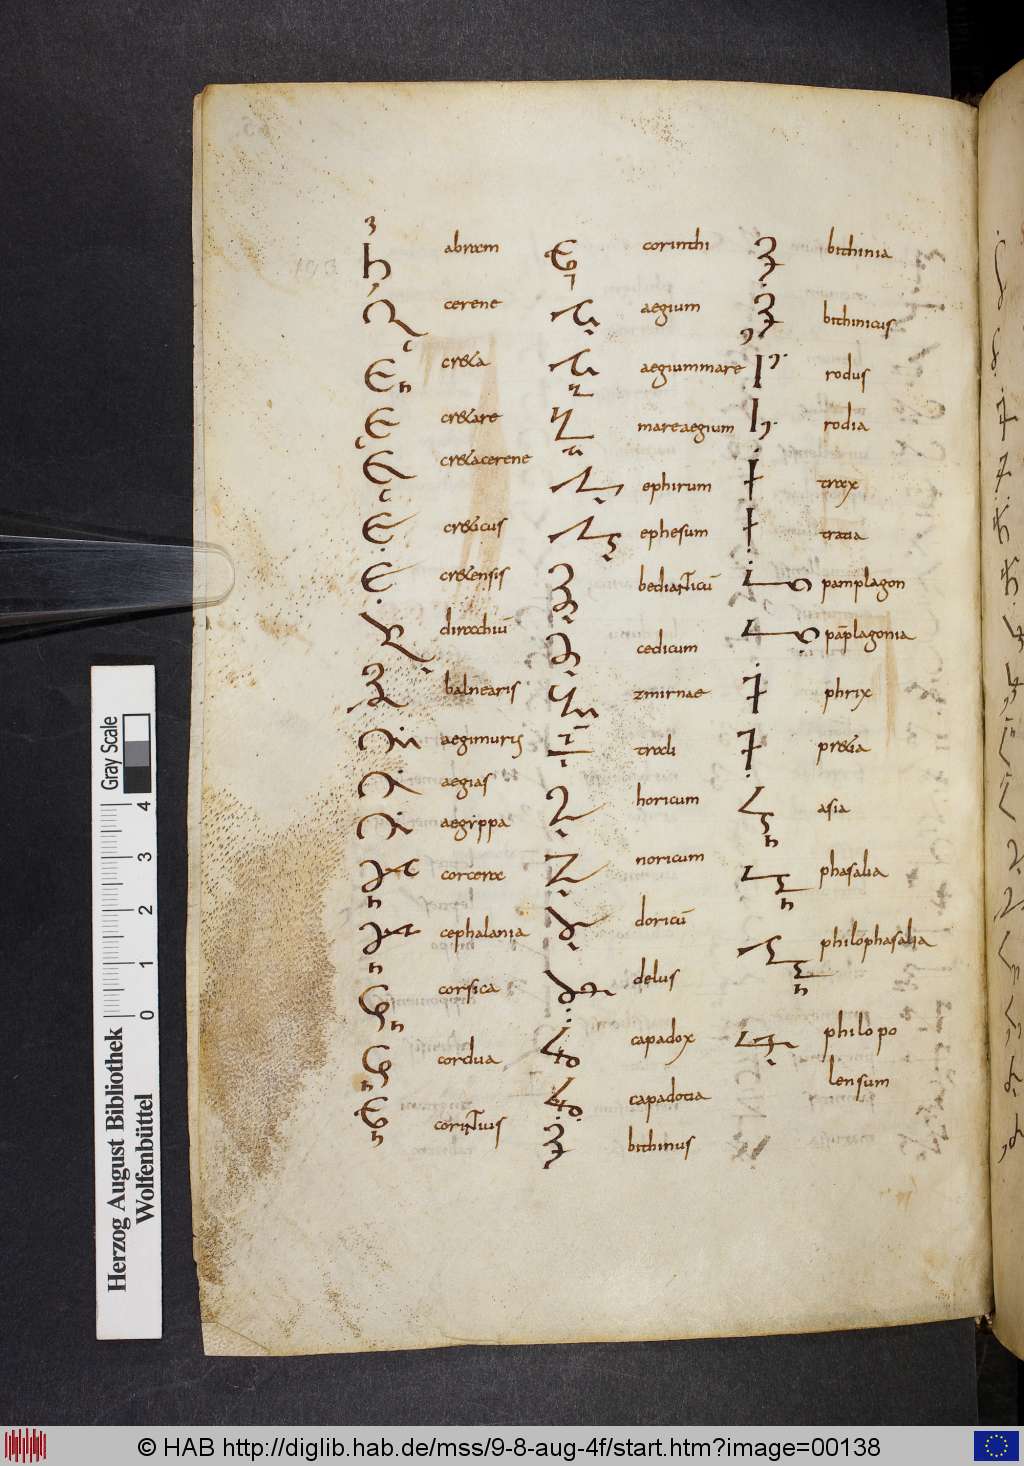 abraam
cerene
creta
cretare
cretacerene
creticus
cretensis
diracchiū
balnearis
aegimuris
aegias
aegippa
corcerae
cephalania
corsica
cordua
corintius
corinthi
aegium
aegiummare
mareaegium
ephirum
ephesum
bedianticū
cedicum
zmirnae
horicum
noricum
doricū
delus
capadox
capadocia
bithinus
bithinia
bithinicus
rodus
rodia
trax
tratia
pamplagon
pāplagonia
phrix
asia
phasalia
philophasalia
philopo
lensum
Gray Scale
4
3
2
1
0
Herzog August Bibliothek
Wolfenbüttel
© HAB http://diglib.hab.de/mss/9-8-aug-4f/start.htm?image=00138